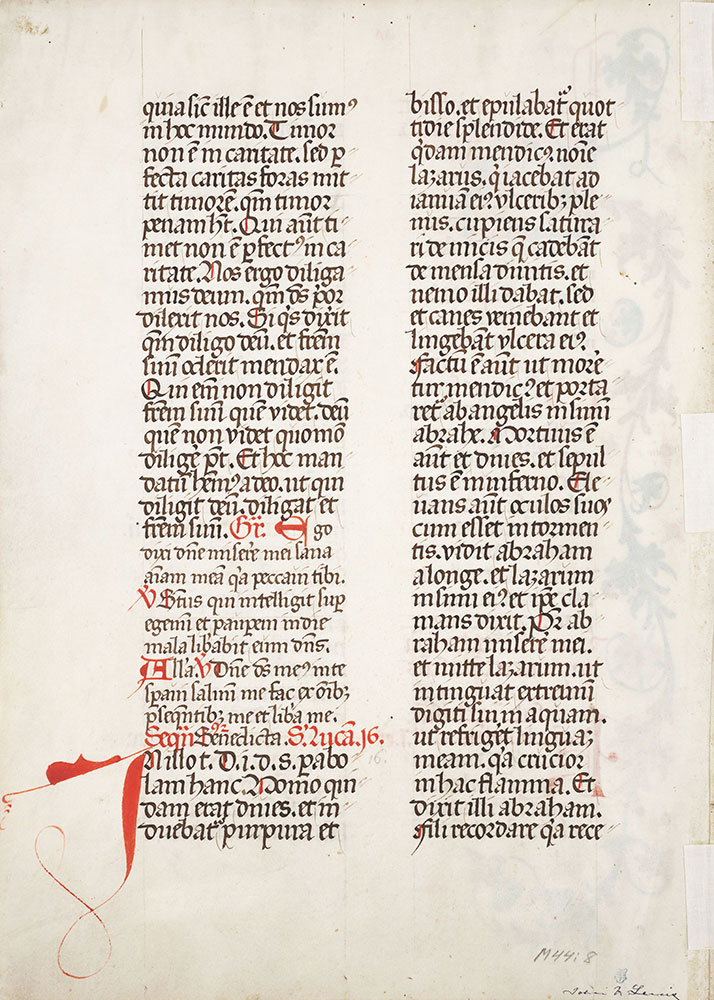 quia sic̄ ille ē et nos sumꝰ
in hoc mundo. Timor
non ē in caritate. sed ꝑ
fecta caritas foras mit
tit timorē. qm̄ timor
penam h̄t. Qui aūt ti
met non ē ꝑfectꝰ in ca
ritate. Nos ergo diliga
mus deum. qm̄ ds̄ p̄or
dilexit nos. Si qͥs dixit
qm̄ diligo deū. et frēm
suū oderit mendax ē.
Qui em̄ non diligit
frēm suū quē videt. deū
quē non videt quomō
diligē p̄t. Et hoc man
datū hēmꝰ a deo. ut qui
diligit deū. diligat et
frēm suū. Gr̄. Ego
dixi dn̄e miserē mei sana
aīam meā qͥa peccaui tibi.
℣ Bt̄us qui intelligit suꝑ
egenū et pauꝑem in die
mala liƀabit eum dn̄s.
All̄a. ℣ Dn̄e ds̄ meꝰ in te
sꝑaui saluū me fac ex oīƀꝫ
ꝑseqn̄tibꝫ me et liƀa me.
Seqn̄ Benedicta. S. Lucā. 16.
In illo t. D. i. d. s. paabo
lam hanc. Homo qui
dam erat diues. et in
duebatᷣ purpura et
bisso. et epulabatᷣ quot
tidie sp̄lendide. Et erat
qͥdam mendicꝰ. noīe
lazarus. qͥ iacebat ad
ianuā eiꝰ ulceribꝫ ple
nus. cupiens satura
ri de micis q̄ cadebāt
de mensa diuitis. et
nemo illi dabat. sed
et canes veniebant et
lingebāt ulcera eiꝰ.
Factū ē aūt ut more
turᷣ mendicꝰ et porta
retᷣ ab angelis in sinū
abrahe. Mortuus ē
aūt et diues. et sepul
tus ē in inferno. Ele
uans aūt oculos suos
cum esset in tormen
tis. vidit abraham
a longe. et lazarum
in sinu eiꝰ et ip̄e cla
mans dixit. Pr̄ ab
raham miserē mei.
et mitte lazarum. ut
intinguat extremū
digiti sui in aquam.
ut refriget linguaꝫ
meam. qͥa crucior
in hac flamma. Et
dixit illi abraham.
Fili recordare qͥa rece
16.
M44:8